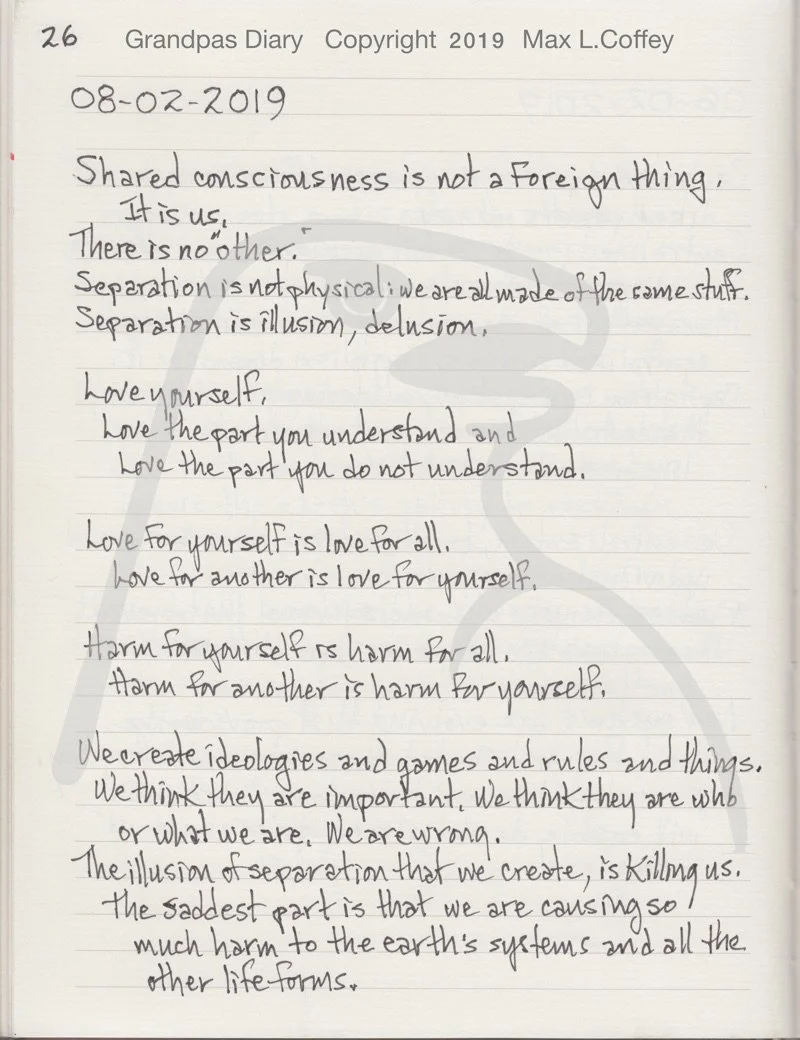 26 Grandpas Diary Copyright 2019 Max L.Coffey
08-02-2019
Shared consciousness is not a foreign thing.
It is us.
There is no "other."
Separation is not physical: we are all made of the same stuff.
Separation is illusion, delusion.
Love yourself.
Love the part you understand and
Love the part you do not understand.
Love for yourself is love for all.
Love for another is love for yourself.
Harm for yourself is harm for all.
Harm for another is harm for yourself.
We create ideologies and games and rules and things.
We think they are important. We think they are who
or what we are. We are wrong.
The illusion of separation that we create, is killing us.
The saddest part is that we are causing so
much harm to the earth's systems and all the
other life forms.